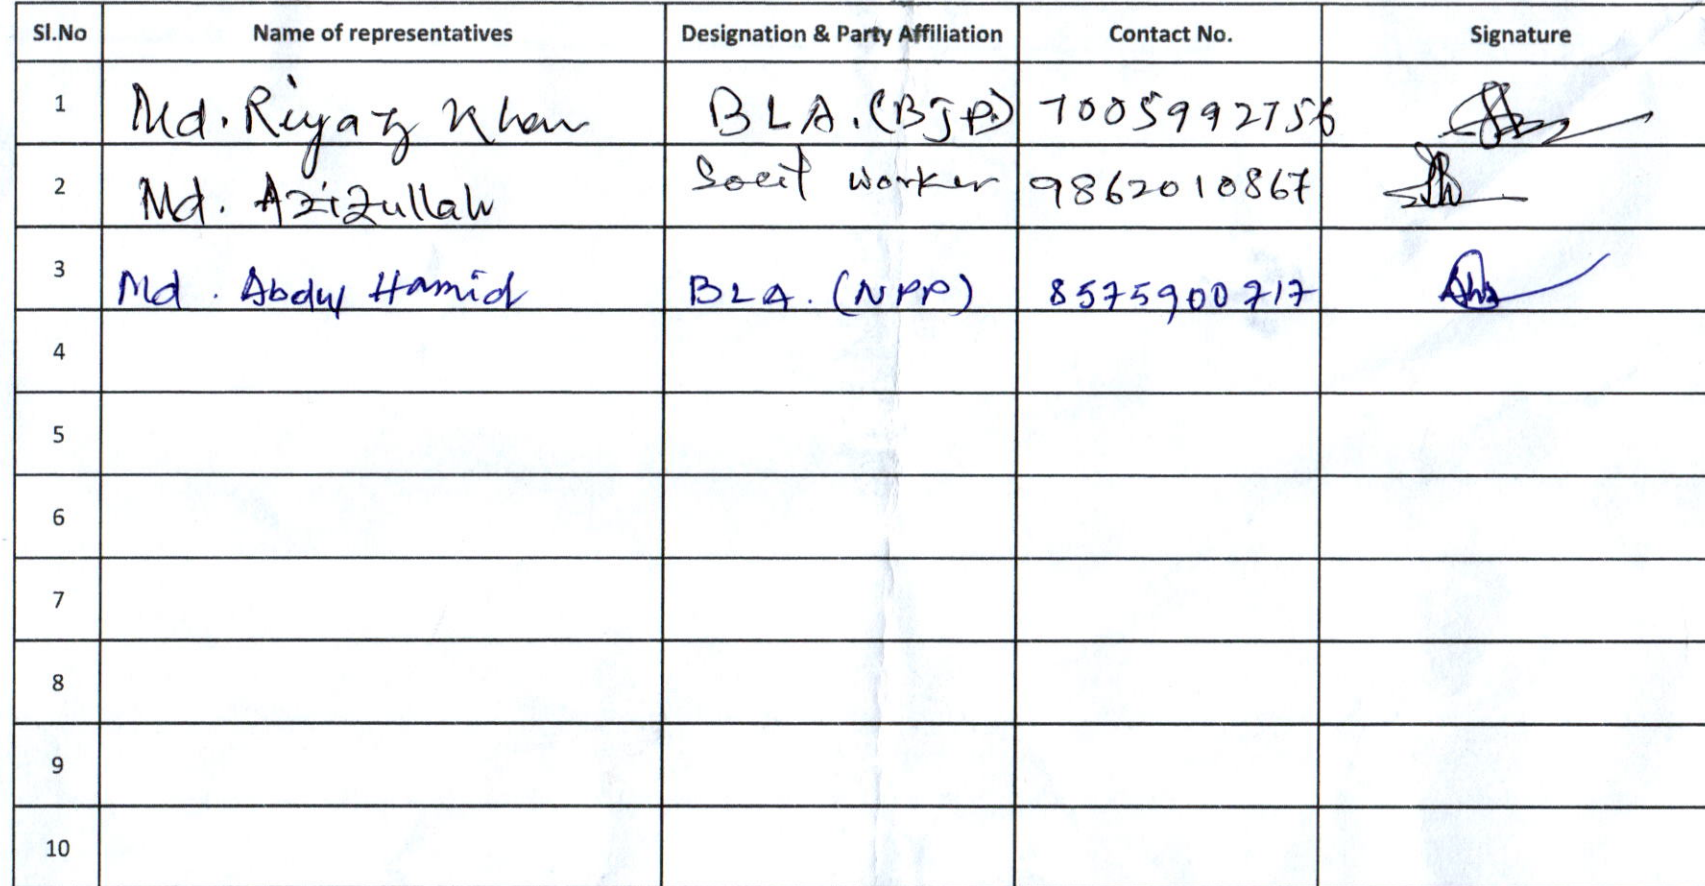 Sl.No Name of representatives Designation & Party Affiliation Contact No. Signature
1 Md. Riyaz Khan BLA. (BJP) 7005992756
2 Md. Azizullah Socil worker 9862010867
3 Md. Abdul Hamid BLA. (NPP) 8575900717
4
5
6
7
8
9
10